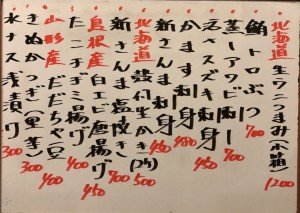 北海道 生ウニつまみ(小箱) 1200
鮪トロぶつ 700
蒸しアワビ刺し 700
スズキ刺身 450
かます刺し 480
新さんま刺身 450
北海道 殻付生かき(2ケ) 500
新さんま塩焼き 700
島根産 白エビ唐揚げ 450
揚げ 400
山形産 だだちゃ豆 400
きぬかつぎ(里芋) 300
水ナス浅漬け 300